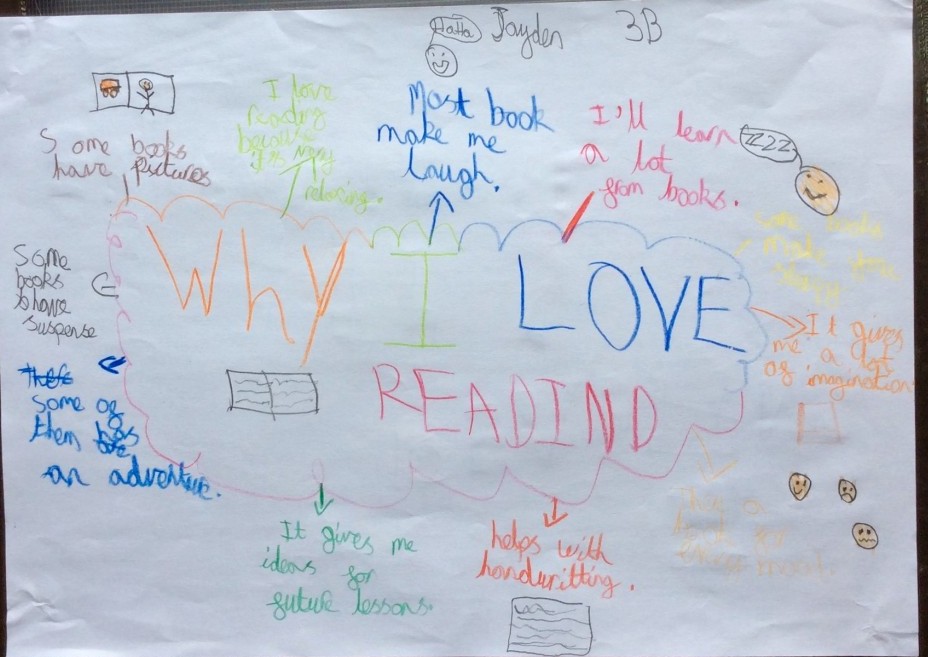 HaHa
Jayden 3B
Some books
have pictures
I love
reading
because
it's very
relaxing.
Most book
make me
laugh.
I'll learn
a lot
from books.
ZZZZ
some books
make you
sleepy
WhY I LOVE
READIND
Some
books
have
suspense
It gives
me a lot
of imagination
Some of
them has
an adventure.
It gives me
ideas for
future lessons.
helps with
handwritting.
a
book for